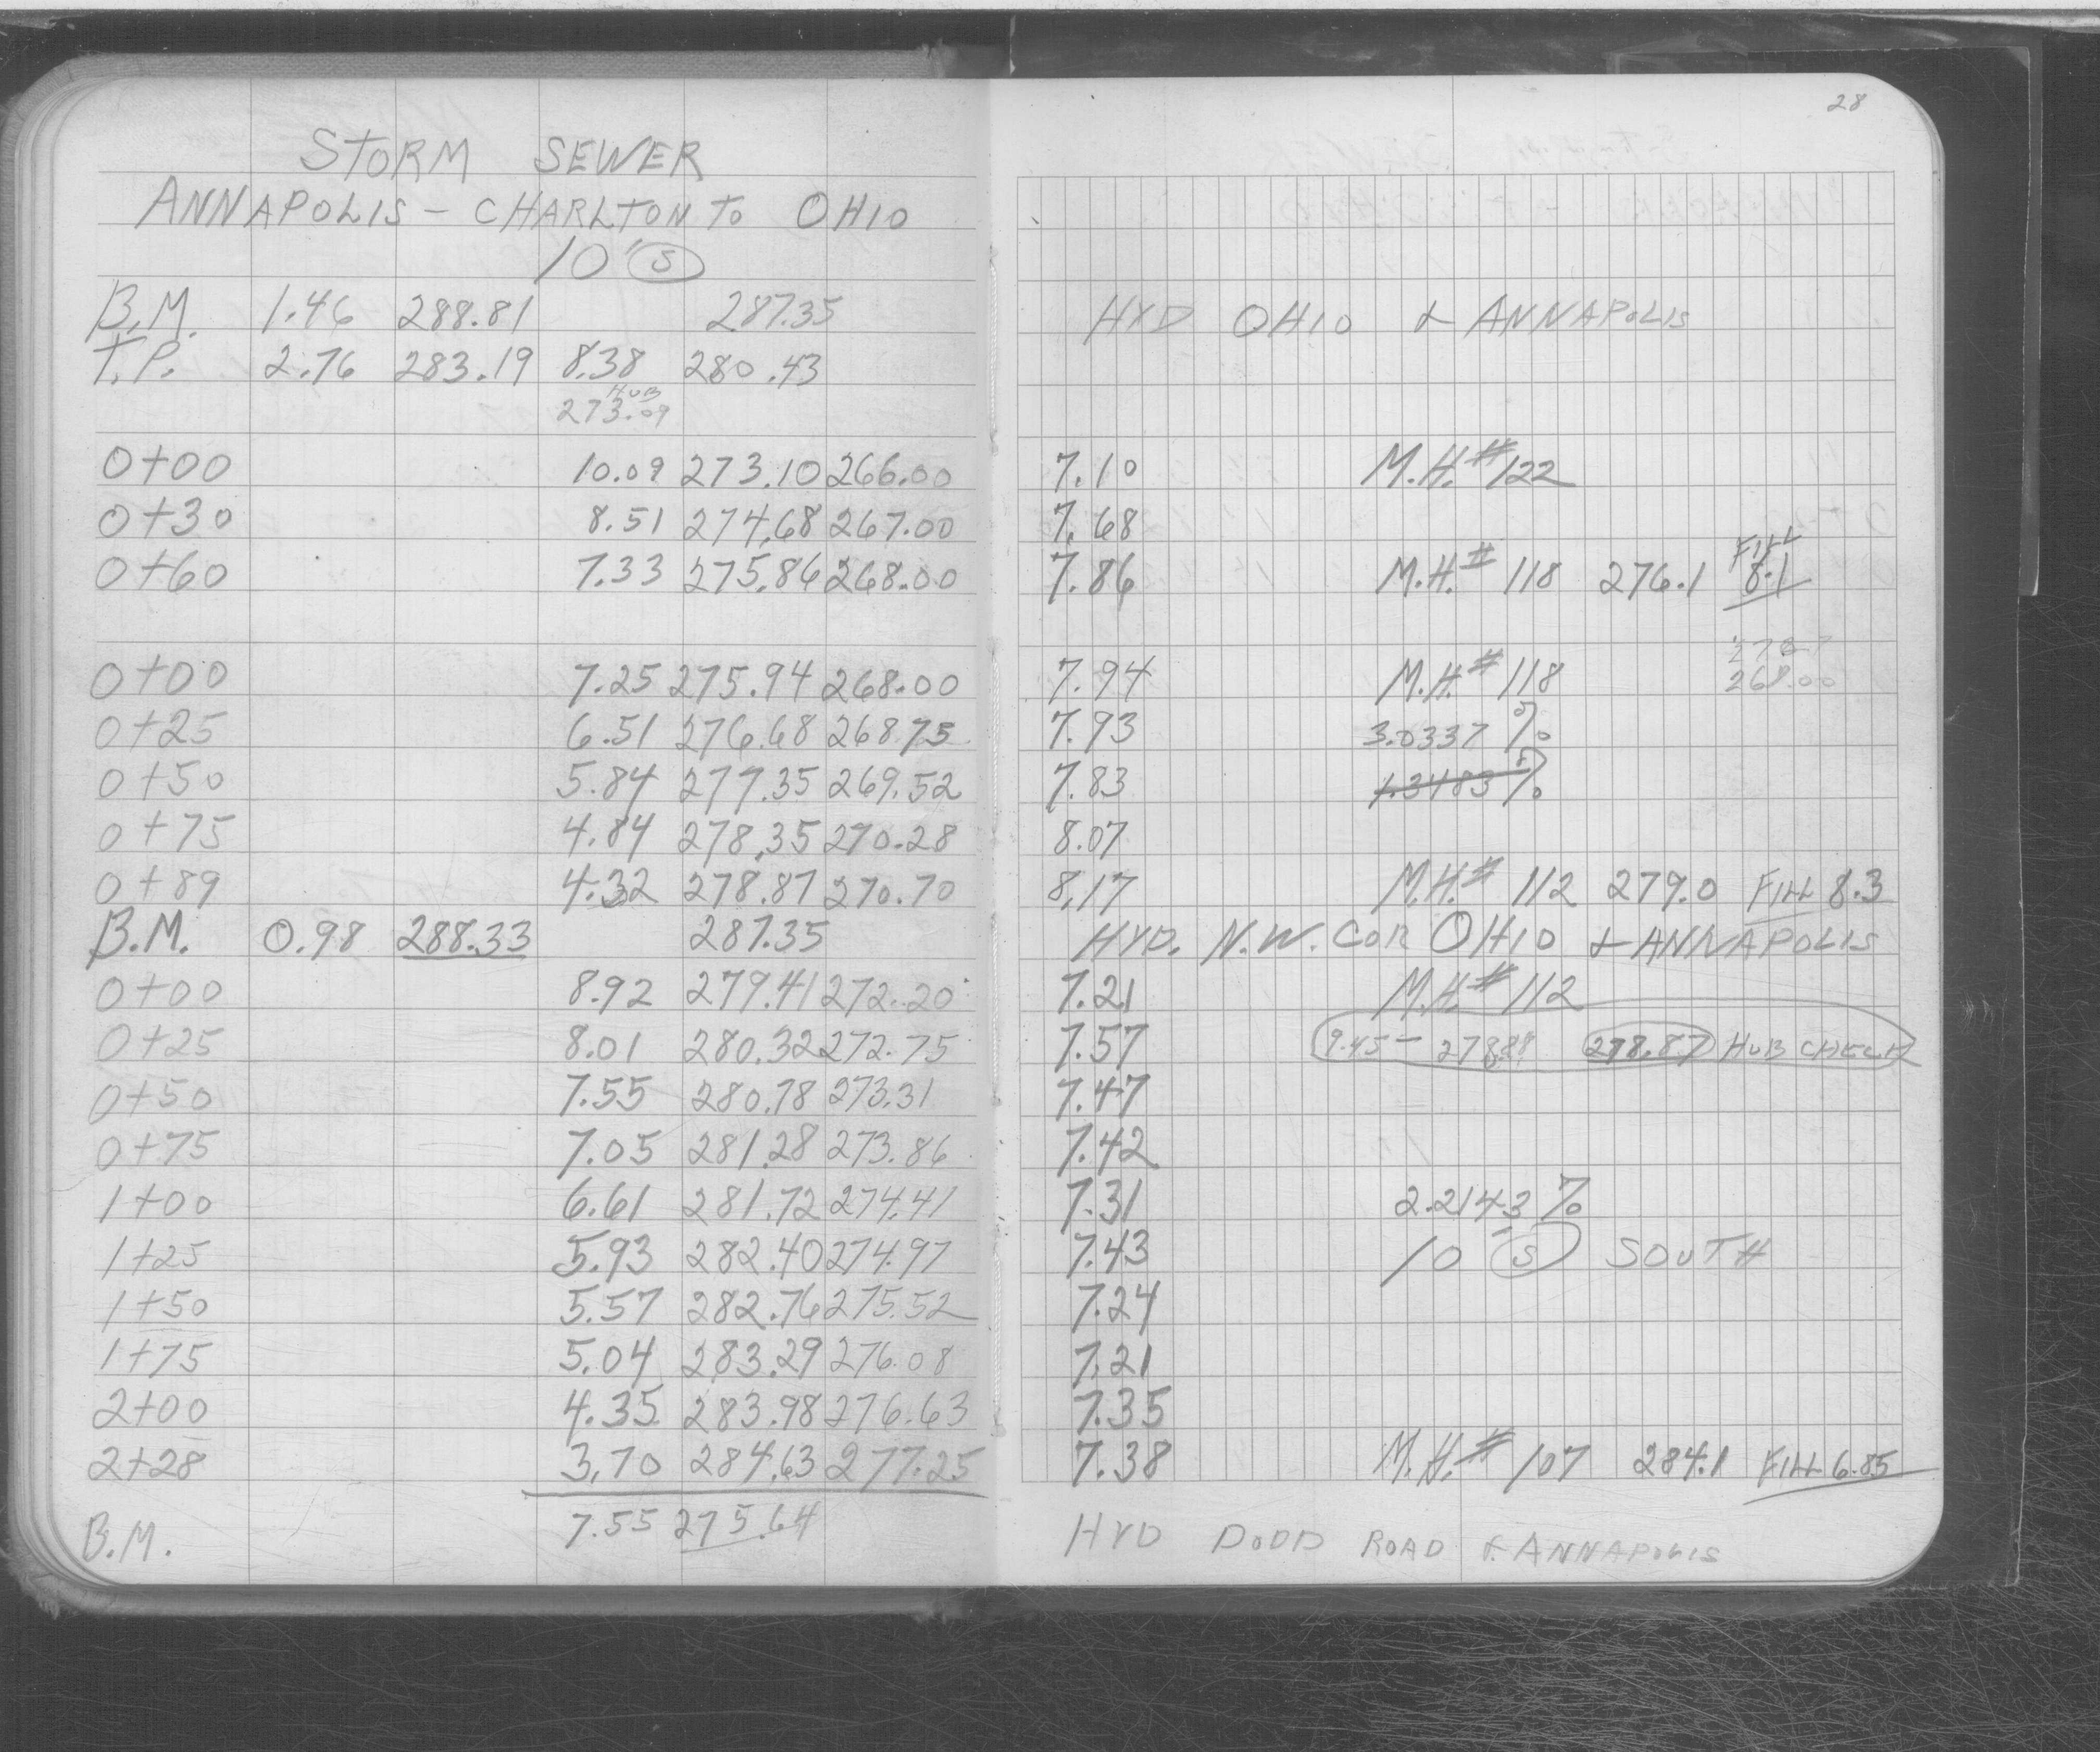 28
STORM SEWER
ANNAPOLIS - CHARLTON TO OHIO
10' (S)
B.M. 1.46 288.81 287.35 HYD OHIO & ANNAPOLIS
T.P. 2.76 283.19 8.38 280.43
HUB
273.09
0+00 10.09 273.10 266.00 7.10 M.H.# 122
0+30 8.51 274.68 267.00 7.68
0+60 7.33 275.86 268.00 7.86 M.H.# 118 276.1 FILL 8.1
0+00 7.25 275.94 268.00 7.94 M.H.# 118 268.00
0+25 6.51 276.68 268.75 7.93 3.0337 %
0+50 5.84 277.35 269.52 7.83 1.3483 %
0+75 4.84 278.35 270.28 8.07
0+89 4.32 278.87 270.70 8.17 M.H.# 112 279.0 FILL 8.3
B.M. 0.98 288.33 287.35 HYD. N.W. COR OHIO & ANNAPOLIS
0+00 8.92 279.41 272.20 7.21 M.H.# 112
0+25 8.01 280.32 272.75 7.57 9.45 - 278.88 278.87 HUB CHECK
0+50 7.55 280.78 273.31 7.47
0+75 7.05 281.28 273.86 7.42
1+00 6.61 281.72 274.41 7.31 2.2143 %
1+25 5.93 282.40 274.97 7.43 10' (S) SOUTH
1+50 5.57 282.76 275.52 7.24
1+75 5.04 283.29 276.08 7.21
2+00 4.35 283.98 276.63 7.35
2+28 3.70 284.63 277.25 7.38 M.H.# 107 284.1 FILL 6.85
B.M. 7.55 275.64 HYD DODD ROAD & ANNAPOLIS